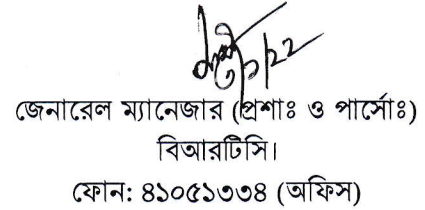 জেনারেল ম্যানেজার (প্রশাঃ ও পার্সোঃ)
বিআরটিসি।
ফোন: ৪১০৫১৩৩৪ (অফিস)